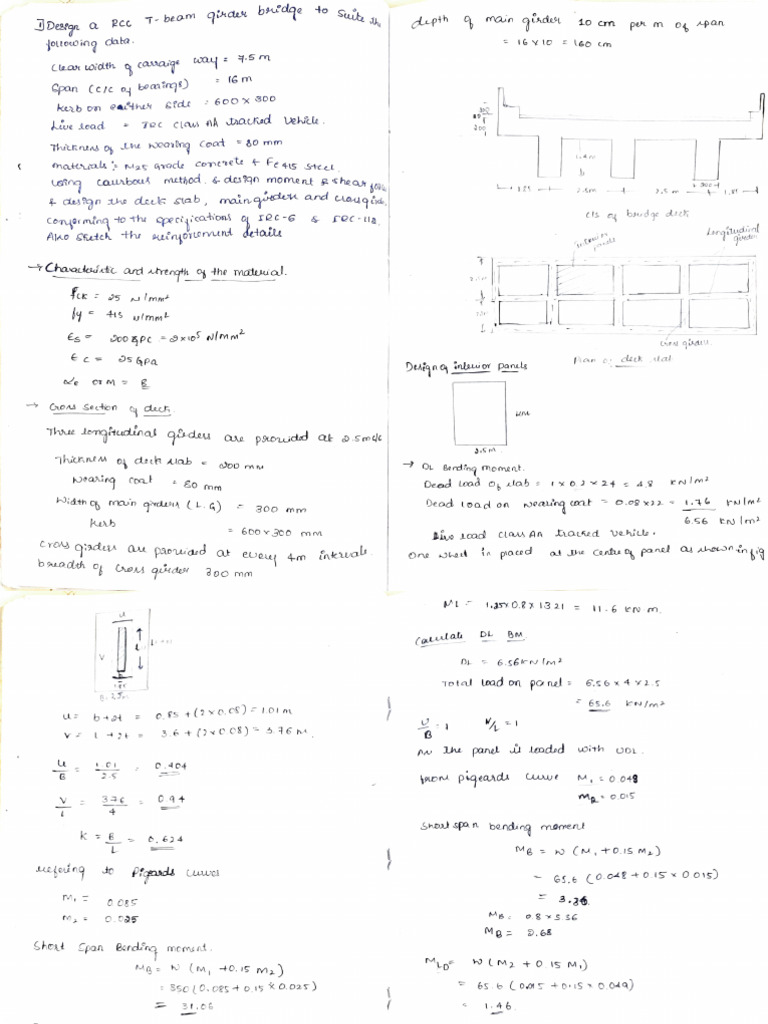 1) Design a RCC T-beam girder bridge to suite the
following data.
Clear width of carraige way = 7.5 m
Span (c/c of bearings) = 16 m
Kerb on either side = 600 x 300
Live load = IRC class AA tracked vehicle.
Thickness of the wearing coat = 80 mm
materials:- M25 grade concrete + Fe 415 steel.
Using method & design moment & shear
& design the deck slab, main girder and
conforming to the specifications of IRC-6 &
Also sketch the reinforcement details
→ Characteristic and strength of the material.
fck = 25 N/mm²
fy = 415 N/mm²
= 2x10⁵ N/mm²
→ Cross section of deck.
Three longitudinal girders are provided at 2.5m c/c
Thickness of deck slab = 200 mm
Wearing coat = 80 mm
Width of main girders (L.G) = 300 mm
Kerb = 600x300 mm
Cross girders are provided at every 4m intervals.
breadth of cross girder 300 mm
depth of main girder 10 cm per m of span
= 16 x 10 = 160 cm
2.5m
2.5 m
C/S of bridge deck
Longitudinal girder
Cross girders
Plan of deck slab
Design of interior panels
2.5m
→ DL Bending moment.
Dead load of slab = 1 x 0.2 x 24 = 4.8 KN/m²
Dead load on wearing coat = 0.08x22 = 1.76 KN/m²
6.56 KN/m²
Live load class AA tracked vehicle.
One wheel is placed at the centre of panel as shown in fig
u
V
u = b+2t = 0.85 + (2 x 0.08) = 1.01 m
v = l + 2t = 3.6 + (2 x 0.08) = 3.76 m
u/B = 1.01/2.5 = 0.404
V/L = 3.76/4 = 0.94
K = B/L = 0.624
Refering to Pigards curves
m₁ = 0.085
m₂ = 0.025
Short Span Bending moment.
MB = W (M₁ + 0.15 M₂)
= 350 (0.085 + 0.15 x 0.025)
= 31.06
ML = 1.25x0.8x1321 = 11.6 KN m.
Calculate DL BM
DL = 6.56 KN/m²
Total load on panel = 6.56 x 4 x 2.5
= 65.6 KN/m²
U/B = 1 V/L = 1
As the panel is loaded with UDL.
from pigeards curve M₁ = 0.048
M₂ = 0.015
Short span bending moment
MB = W (M₁ + 0.15 M₂)
= 65.6 (0.048 + 0.15 x 0.015)
= 3.36
MB = 0.8 x 3.36
MB = 2.68
= W (M2 + 0.15 M₁)
= 65.6 (0.015 + 0.15 x 0.049)
= 1.46